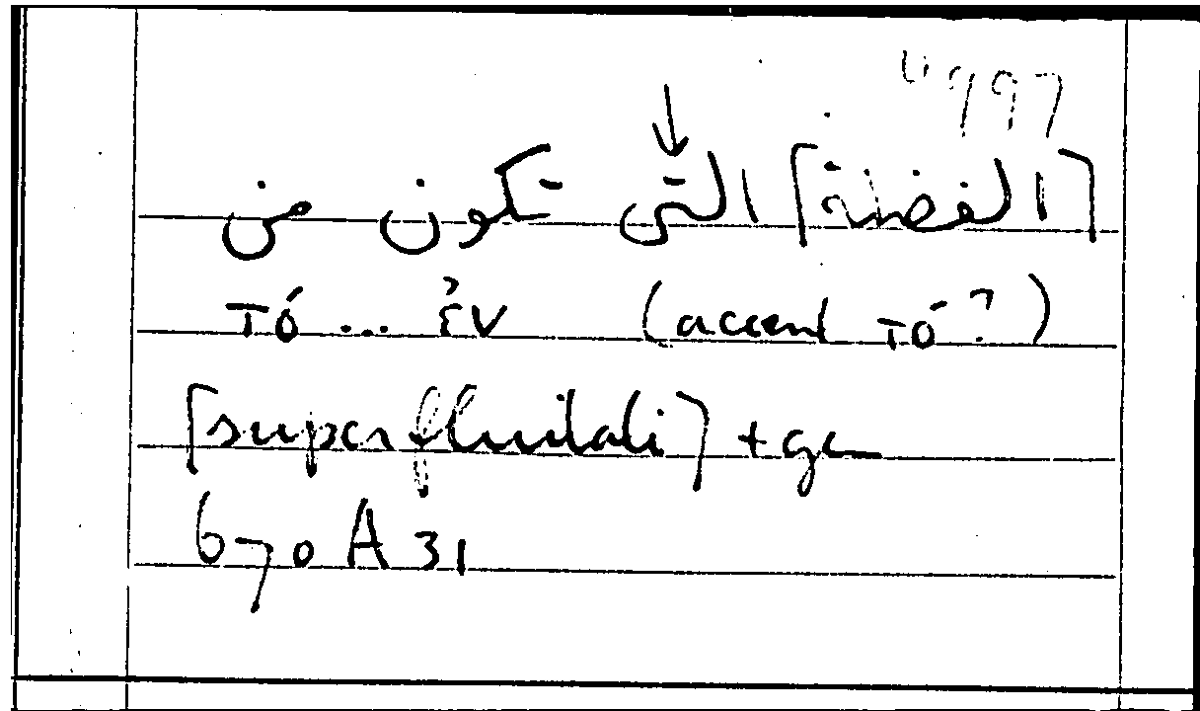 [الفضلة] التى تكون من
τό ... ἐν (accent τό?)
[superfluitati] + gen
670 A 31